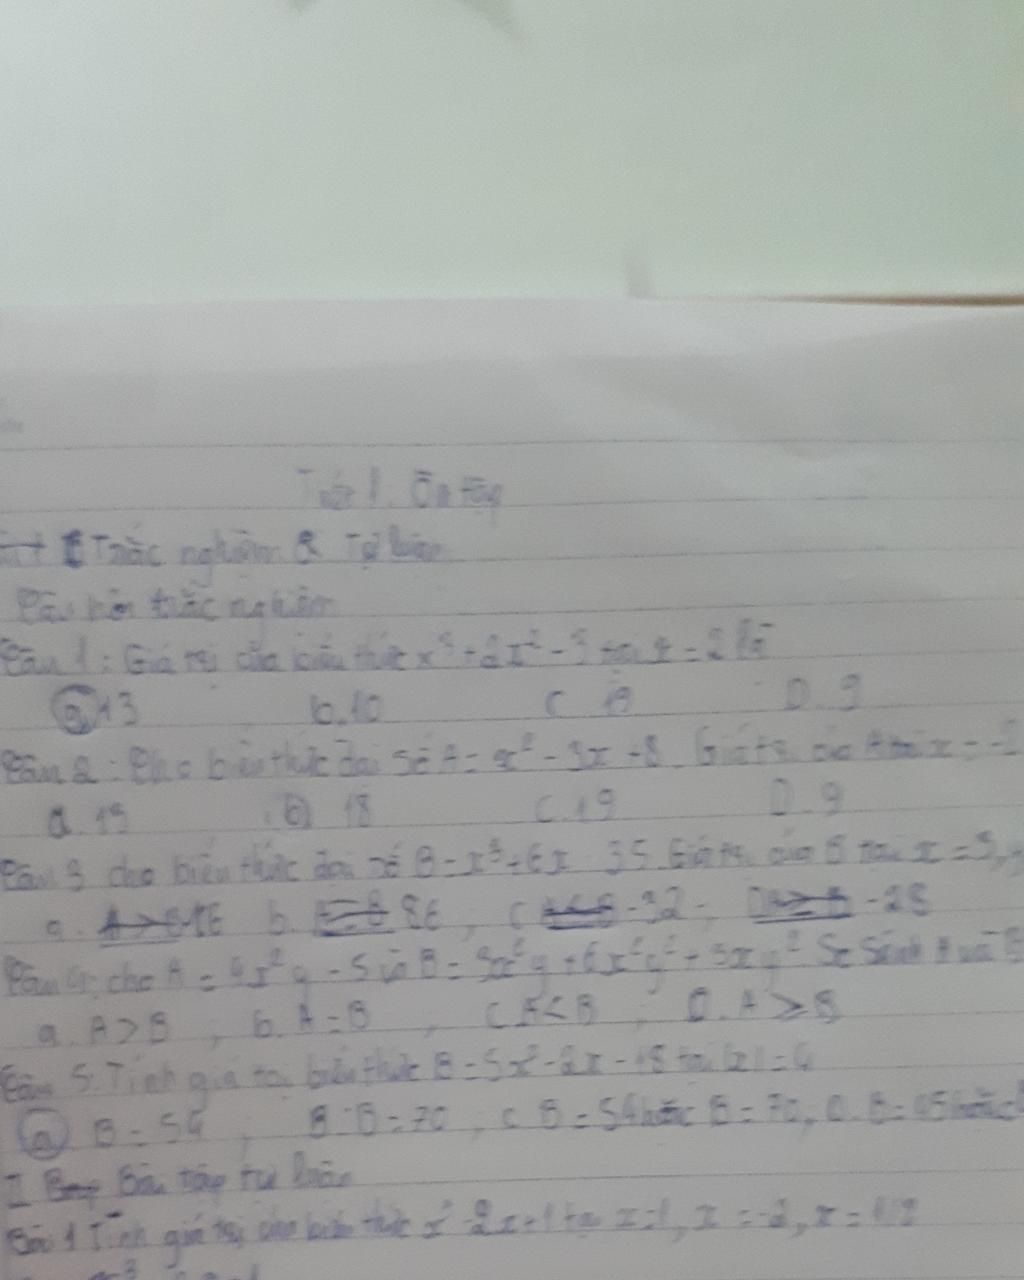 Tiết 1. Ôn tập
Trắc nghiệm & Tự luận
Câu hỏi trắc nghiệm
Câu 1: Giá trị của biểu thức x³ + 2x² - 3 tại x = 2 là
a. 13 b. 10 C 19 D. 9
Câu 2: Cho biểu thức đại số A = x² - 3x + 8. Giá trị của A tại x = -2
a. 15 18 C. 19 D. 9
Câu 3 cho biểu thức đại số B = x³ + 6x - 35. Giá trị của B tại x = 3,
a. 16 b. 86 ; C -32 ; D -28
Câu 4: cho A = 4x²y - 5 và B = 3x²y + 6x²y² + 3xy² So sánh A và B
a. A > B , b. A = B , C A < B ; D. A ≥ B
Câu 5. Tính giá trị biểu thức B = 5x² - 2x - 18 tại |x| = 4
a B = 54 , B. B = 70 ; C B = 54 hoặc B = 70, D. B = 45 hoặc
I Bài tập tự luận
Bài 1 Tính giá trị của biểu thức x² - 2x + 1 tại x = 1, x = -2, x = 1/2